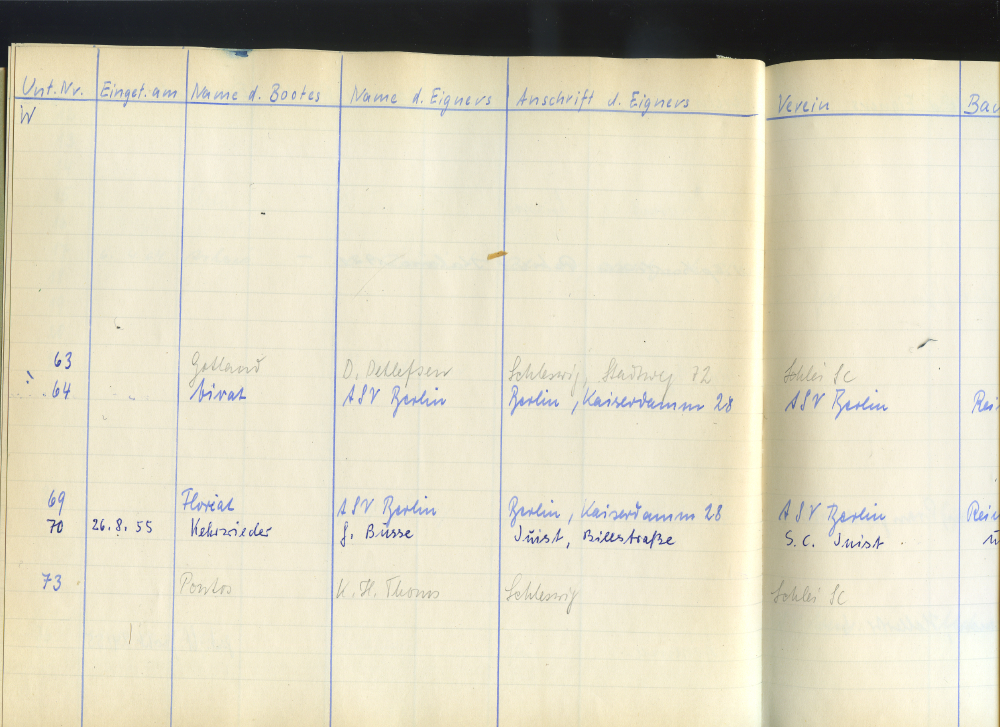 Unt. Nr. Einget. am Name d. Bootes Name d. Eigners Anschrift d. Eigners Verein Bau
W
63 Gotland D. Detlefsen Schleswig, Stadtweg 72 Schlei SC
64 Vivat ASV Berlin Berlin, Kaiserdamm 28 ASV Berlin Rei
69 Floreat ASV Berlin Berlin, Kaiserdamm 28 ASV Berlin Rei
70 26.8.55 Kehrwieder J. Busse Juist, Billstraße S.C. Juist
73 Pontos K. H. Thoms Schleswig Schlei SC